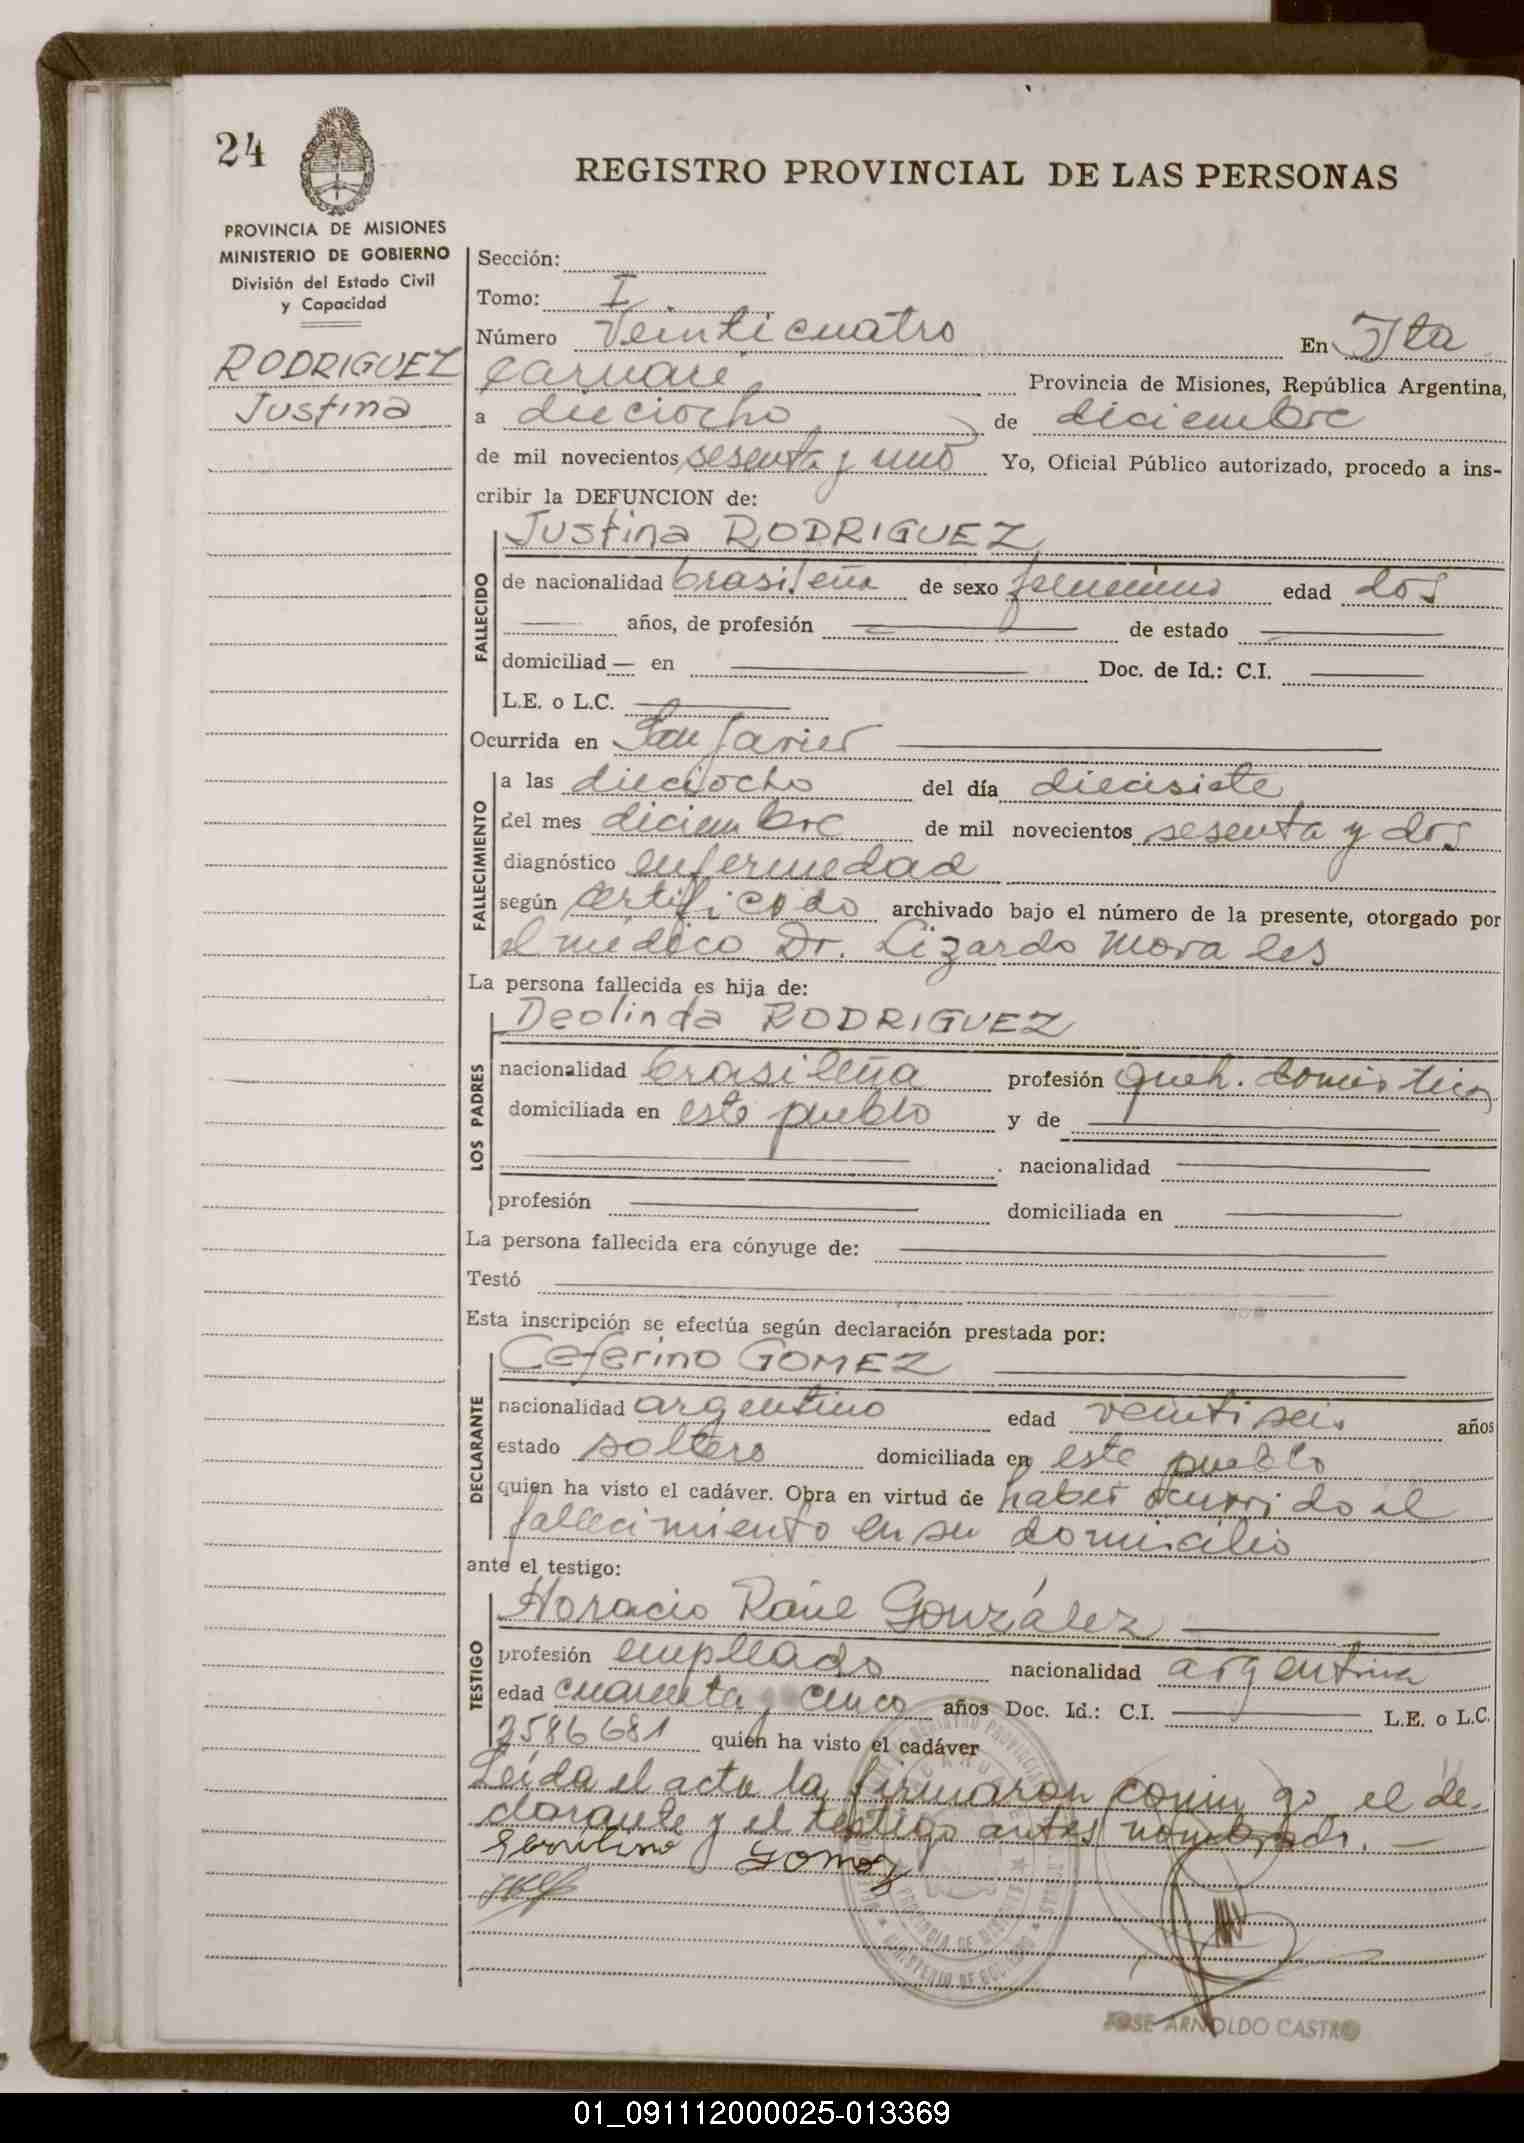 24
REGISTRO PROVINCIAL DE LAS PERSONAS
PROVINCIA DE MISIONES
MINISTERIO DE GOBIERNO
División del Estado Civil
y Capacidad
RODRIGUEZ
Justina
Sección:
Tomo: I
Número Veinticuatro En Ita
Caruaré, Provincia de Misiones, República Argentina,
a dieciocho de diciembre
de mil novecientos sesenta y uno Yo, Oficial Público autorizado, procedo a ins-
cribir la DEFUNCION de:
Justina RODRIGUEZ
FALLECIDO
de nacionalidad brasileña de sexo femenino edad dos
años, de profesión de estado
domiciliad en Doc. de Id.: C.I.
L.E. o L.C.
Ocurrida en San Javier
FALLECIMIENTO
a las dieciocho del día diecisiete
del mes diciembre de mil novecientos sesenta y dos
diagnóstico enfermedad
según certificado archivado bajo el número de la presente, otorgado por
el médico Dr. Lizardo Morales
La persona fallecida es hija de:
Deolinda RODRIGUEZ
LOS PADRES
nacionalidad brasileña profesión queh. domésticos
domiciliada en este pueblo y de
nacionalidad
profesión domiciliada en
La persona fallecida era cónyuge de:
Testó
Esta inscripción se efectúa según declaración prestada por:
Ceferino GOMEZ
DECLARANTE
nacionalidad argentino edad veintiseis años
estado soltero domiciliada en este pueblo
quien ha visto el cadáver. Obra en virtud de haber ocurrido el
fallecimiento en su domicilio
ante el testigo:
Horacio Raúl González
TESTIGO
profesión empleado nacionalidad argentina
edad cuarenta y cinco años Doc. Id.: C.I. L.E. o L.C.
2586681 quien ha visto el cadáver
Leída el acta la firmaron conmigo el de-
clarante y el testigo antes nombrado.
Gomez
JOSE ARNOLDO CASTRO
01_091112000025-013369